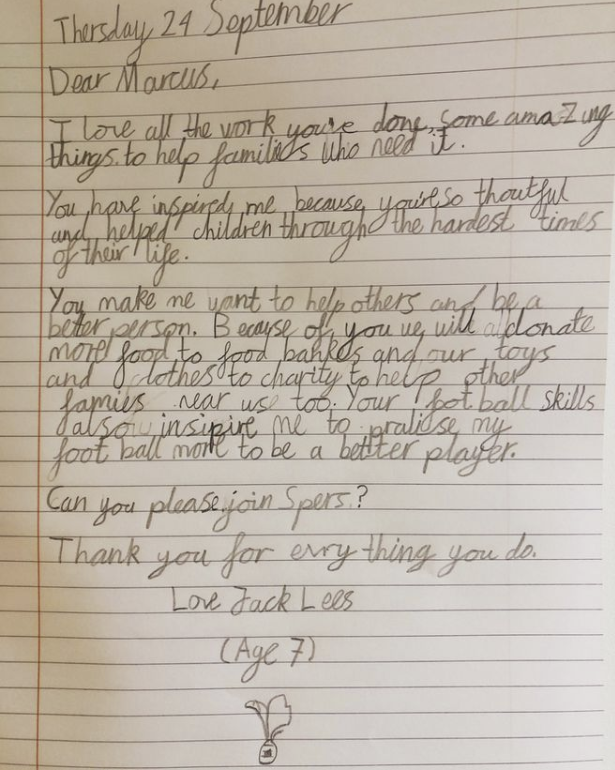 Thersday 24 September
Dear Marcus,
I love all the work you've done, some amazing
things to help families who need it.
You have inspired me because you're so thoutful
and helped children through the hardest times
of their life.
You make me want to help others and be a
better person. Because of you we will donate
more food to food bankes and our toys
and clothes to charity to help other
famies near us too. Your foot ball skills
also insipire me to pratise my
foot ball more to be a better player.
Can you please join Spers?
Thank you for evry thing you do.
Love Jack Lees
(Age 7)